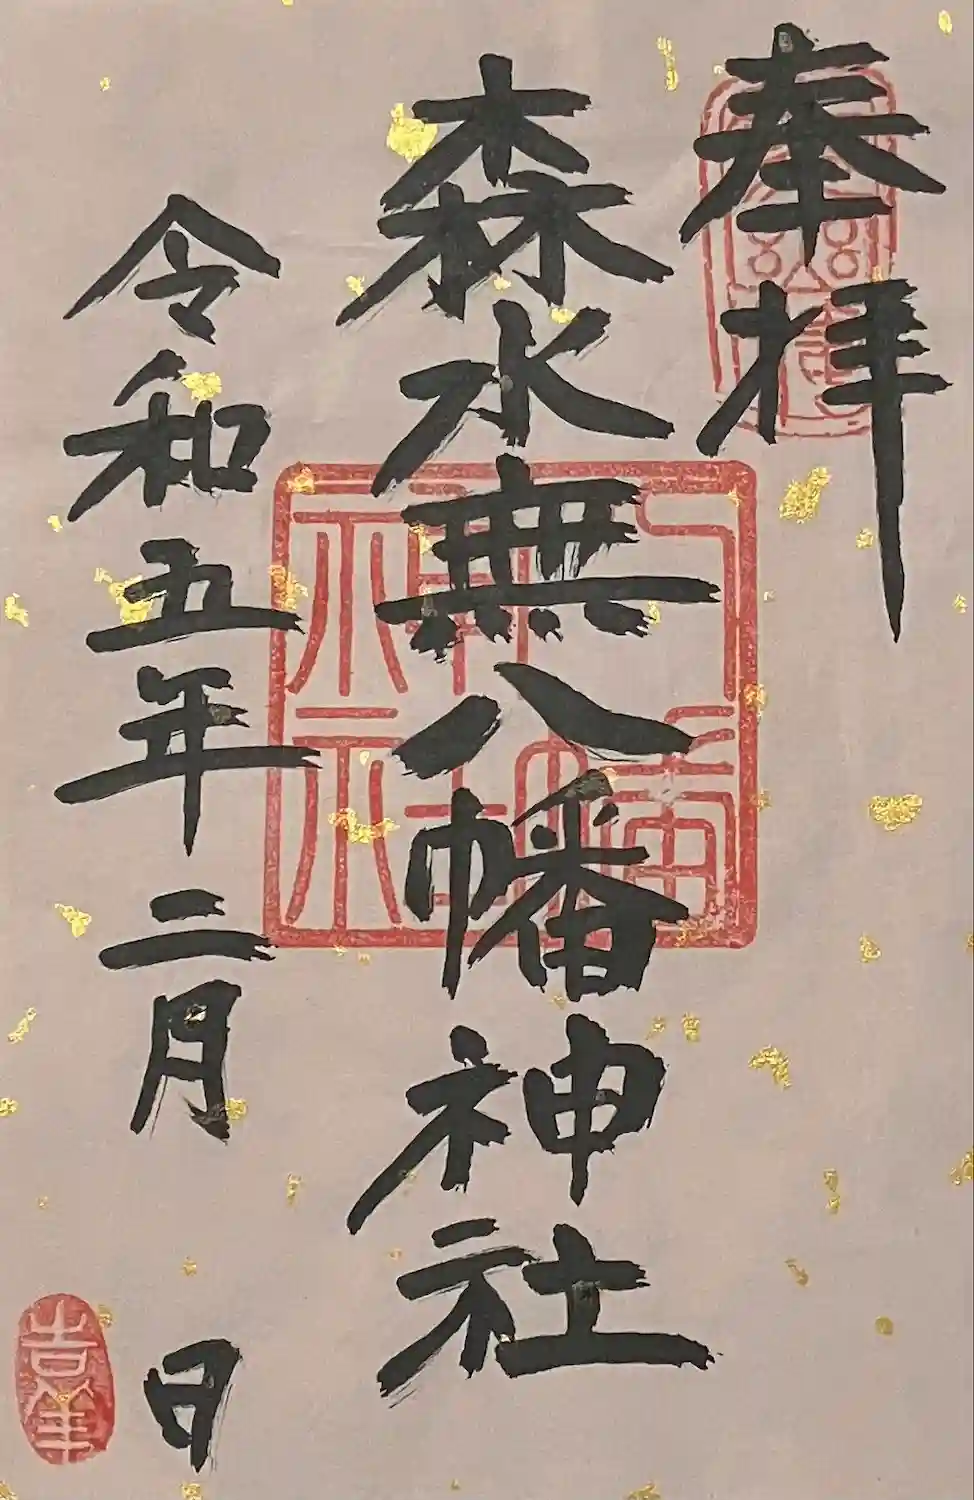 奉拝
森水無八幡神社
令和五年二月 日
八幡神社